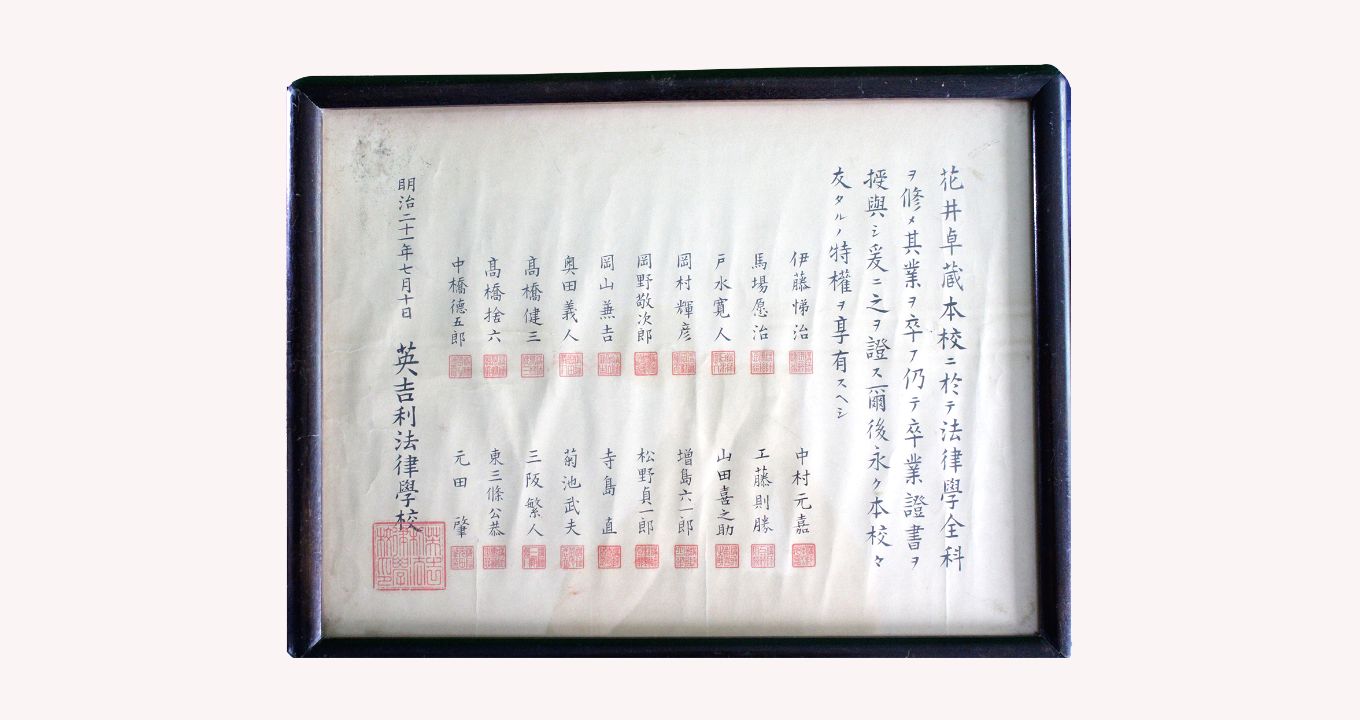 花井卓蔵本校ニ於テ法律學全科
ヲ修メ其業ヲ卒フ仍テ卒業證書ヲ
授與シ爰ニ之ヲ證ス爾後永ク本校々
友タルノ特權ヲ享有スヘシ
伊藤悌治
中村元嘉
馬場愿治
工藤則勝
戸水寛人
山田喜之助
岡村輝彦
増島六一郎
岡野敬次郎
松野貞一郎
岡山兼吉
寺島直
奥田義人
菊池武夫
高橋健三
三阪繁人
高橋捨六
東三條公恭
中橋徳五郎
元田肇
明治二十一年七月十日 英吉利法律學校